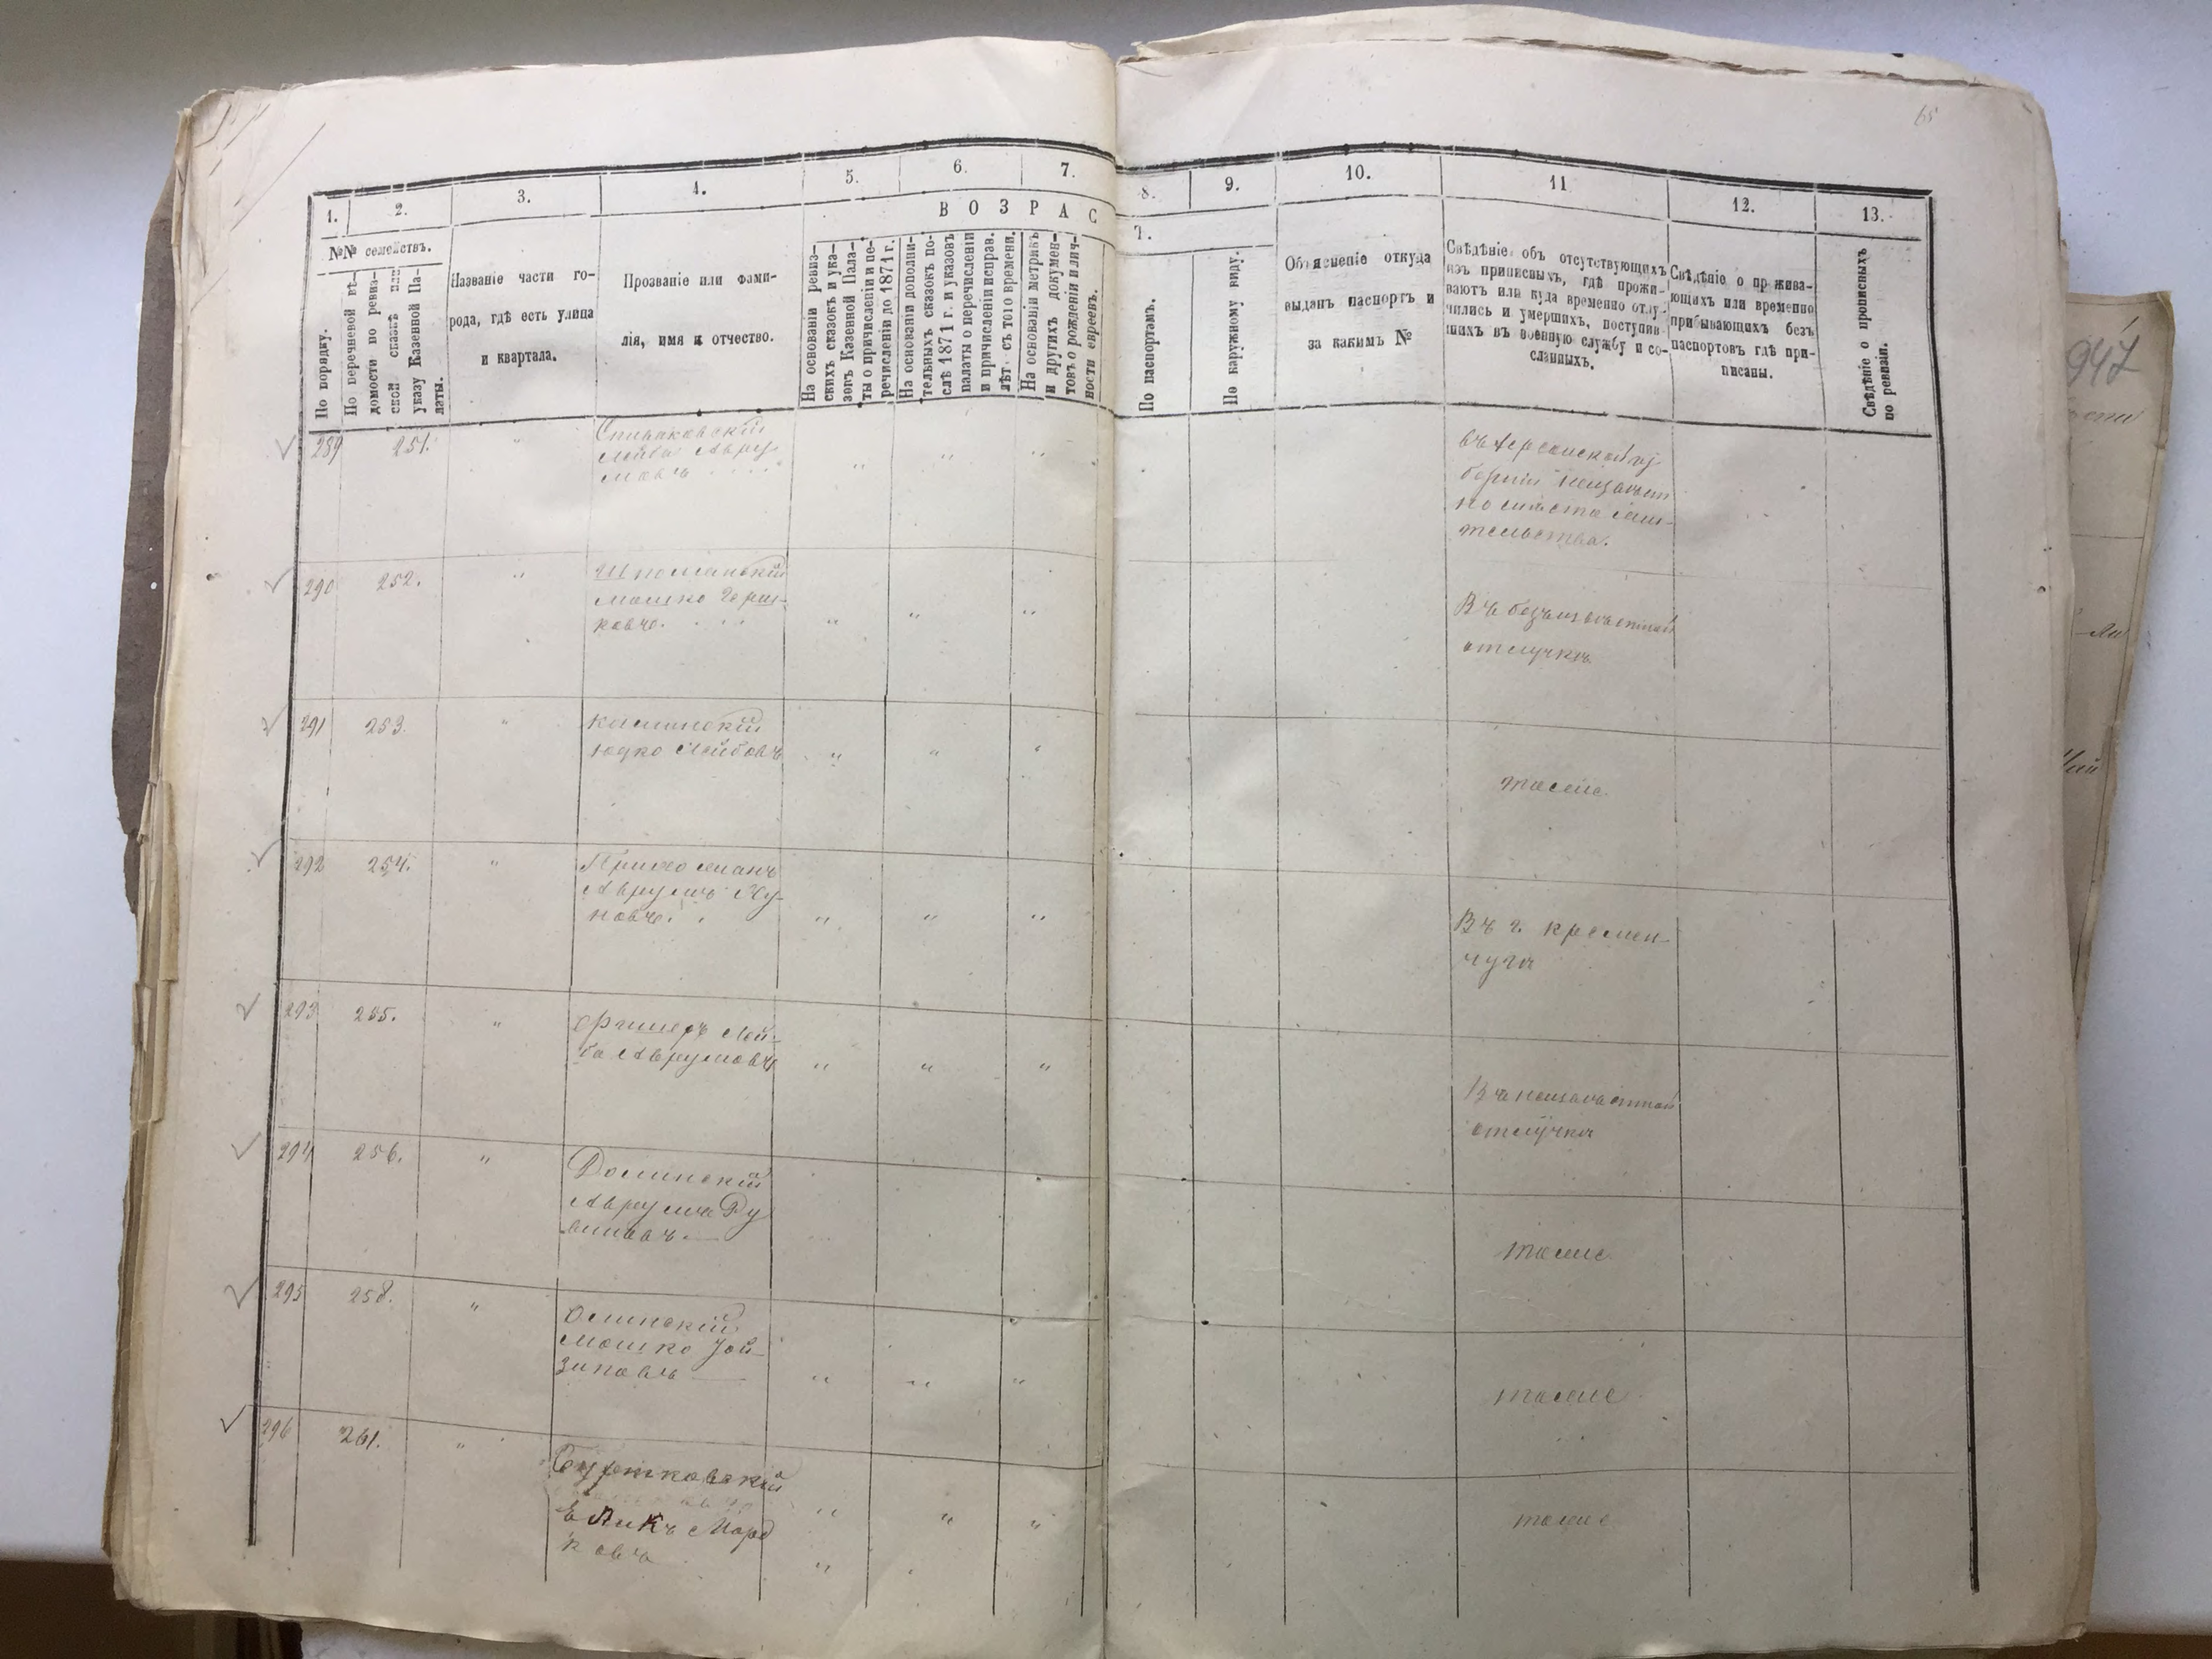 65
1.
2.
3.
4.
5.
6.
7.
8.
9.
10.
11
12.
13.
В О З Р А С
Т.
№№ семействъ.
По порядку.
По перечневой вѣ-
домости по ревиз-
ской сказкѣ или
указу Казенной Па-
латы.
Названіе части го-
рода, гдѣ есть улица
и квартала.
Прозваніе или фами-
лія, имя и отчество.
На основаніи ревиз-
скихъ сказокъ и ука-
зовъ Казенной Пала-
ты о причисленіи и пе-
речисленіи до 1871 г.
На основаніи дополни-
тельныхъ сказокъ по-
слѣ 1871 г. и указовъ
палаты о перечисленіи
и причисленіи исправ.
лѣт. съ того времени.
На основаніи метрикъ
и другихъ докумен-
товъ о рожденіи и лич-
ности евреевъ.
По паспортамъ.
По наружному виду.
Объясненіе откуда
выданъ паспортъ и
за какимъ №
Свѣдѣніе объ отсутствующихъ
изъ приписныхъ, гдѣ прожи-
ваютъ или куда временно отлу-
чились и умершихъ, поступив-
шихъ въ военную службу и со-
сланныхъ.
Свѣдѣніе о прожива-
ющихъ или временно
прибывающихъ безъ
паспортовъ гдѣ при-
писаны.
Свѣдѣніе о прописныхъ
по ревизіи.
289 251. "
Спиваковскій
Лейба Авру-
мовъ
" " "
въ Херсонской гу
берніи неизвѣст
но мѣсто жи-
тельства.
290 252. "
Шполянскій
Мошко Герш-
ковъ.
" " "
Въ безъизвѣстной
отлучкѣ
291 253. "
Каминскій
Юдко Лейбовъ
" " "
тоже
292 254. "
Аврумъ Ну-
новъ.
" " "
Въ г. Кремен-
чугѣ
293 255. "
Фишеръ Лей-
ба Аврумовъ
" " "
Въ неизвѣстной
отлучкѣ
294 256. "
Долинскій
Аврумъ Ру
виновъ.
тоже
295 258. "
Олинскій
Мошко Іой-
зиповъ
" " "
тоже
296 261. "
Мард
ковъ
" " "
"
тоже
947